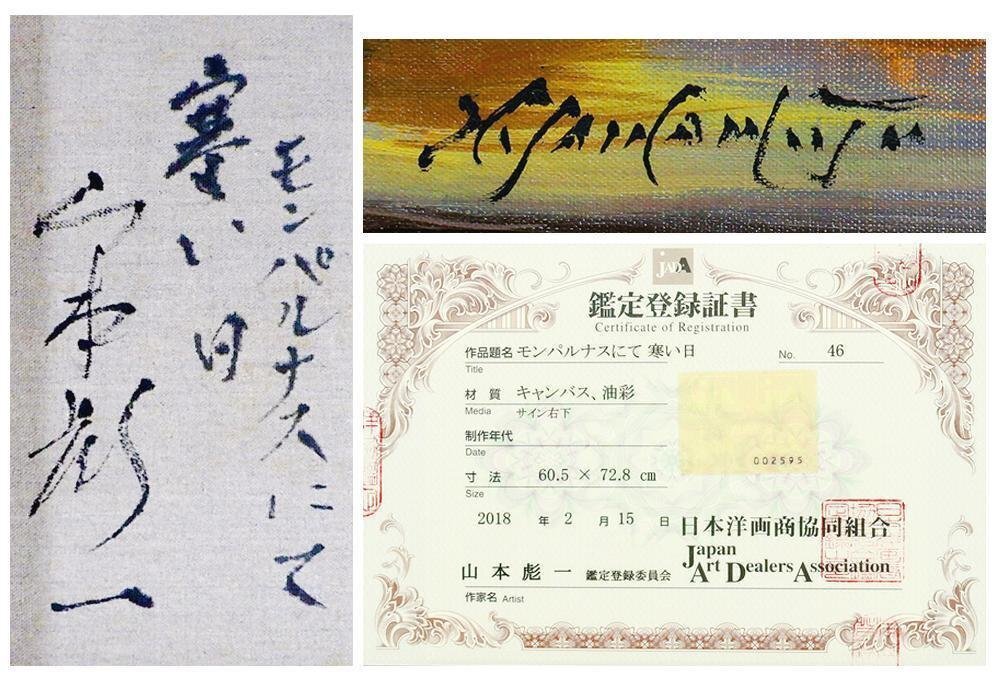 モンパルナスにて
寒い日
山本彪一
H.Yamamoto
JADA
鑑定登録証書
Certificate of Registration
作品題名 モンパルナスにて 寒い日
Title
No. 46
材質 キャンバス、油彩
Media サイン右下
制作年代
Date
002595
寸法 60.5 × 72.8 cm
Size
2018 年 2 月 15 日
日本洋画商協同組合
Japan
Art Dealers Association
山本彪一 鑑定登録委員会
作家名 Artist